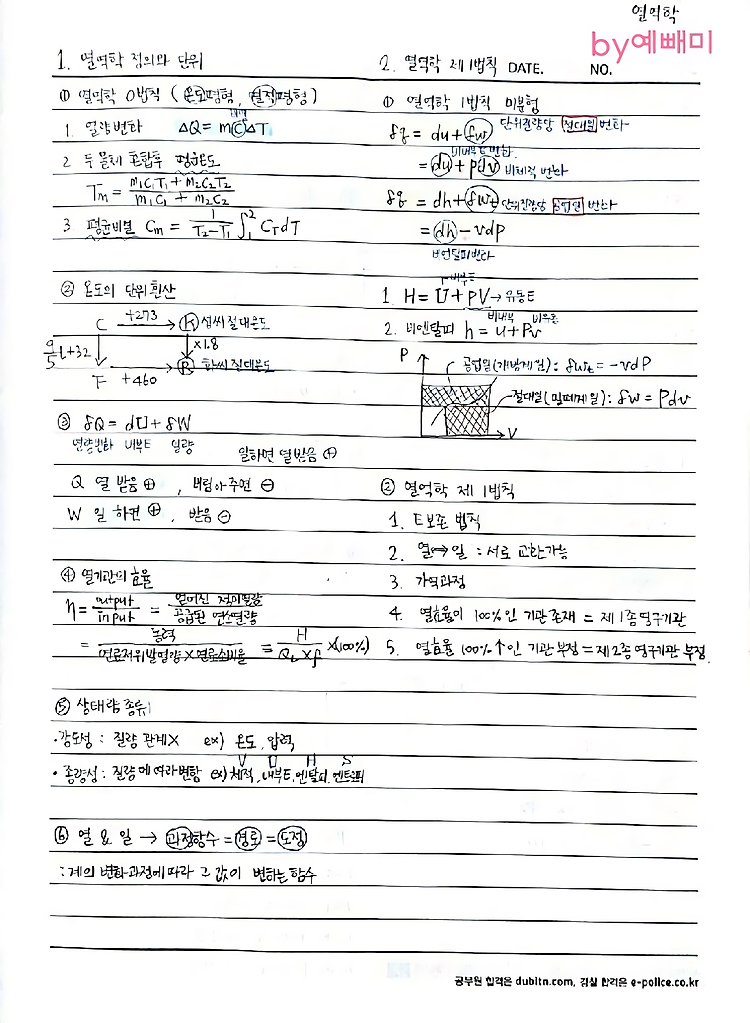 열역학
by예빼미
1. 열역학 정의와 단위
① 열역학 0법칙 ( 온도평형, 열적평형 )
1. 열량변화 ΔQ = mCΔT
2 두 물체 혼합후 평균온도
Tm = m₁C₁T₁ + m₂C₂T₂ / m₁C₁ + m₂C₂
3 평균비열 Cm = 1/(T₂-T₁) ∫₁² C_T dT
② 온도의 단위 환산
C +273 → K 섭씨절대온도
9/5 t+32 ×1.8
F +460 → R 화씨절대온도
③ δQ = dU + δW
열량변화 내부E 일량
일하면 열받음 ⊕
Q 열 받음 ⊕ , 내주면 ⊖
W 일 하면 ⊕ , 받음 ⊖
④ 열기관의 효율
η = output/input = 얻어진 / 공급된 연소열량
= 동력 / 연료저위발열량 × 연료소비율 = H / Q_L × f ×(100%)
⑤ 상태량 종류
·강도성 : 질량 관계X ex) 온도, 압력
V U H S
·종량성 : 질량에 따라 변함 ex) 체적, 내부E, 엔탈피, 엔트로피
⑥ 열 & 일 → 과정함수 = 경로 = 도정
: 계의 변화과정에 따라 그 값이 변하는 함수
2. 열역학 제1법칙 DATE. NO.
① 열역학 1법칙 미분형
δq = du + δw 단위질량당 절대일 변화
비내부E변화
= du + pdv 비체적 변화
δq = dh + δwt 단위질량당 공업일 변화
= dh - vdp
비엔탈피변화
내부E
1. H = U + PV → 유동E
비내부 비유동
2. 비엔탈피 h = u + Pv
P
공업일(개방계일) : δwt = -vdP
절대일(밀폐계일) : δw = Pdv
V
② 열역학 제1법칙
1. E보존 법칙
2. 열↔일 : 서로 교환가능
3. 가역과정
4. 열효율이 100%인 기관 존재 = 제1종영구기관
5. 열효율 100%↑인 기관 부정 = 제2종 영구기관 부정.
공무원 합격은 dubitn.com, 경찰 합격은 e-police.co.kr